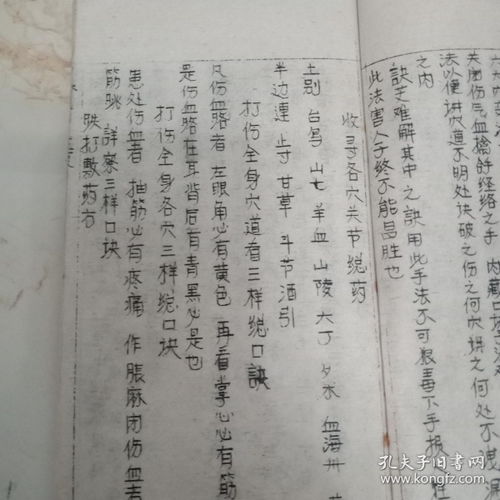 六
关闭伤气血擒舒经络之手 内藏口
法以便讲穴道不明处诀破之伤之何穴損之何处不
之内
訣芝难解其中之訣用此手法不可狠毒下手报
此法害人子终不能昌胜也
收寻各穴关节總药
土别 台乌 山七 羊血 山陵 大丁 夕木 血海卅
半边連 上寸 甘草 斗节 酒引
打伤全身穴道看三样總口訣
凡伤血路者 左眼角必有黄色 再看掌心必有筋
是伤血路在耳背后有青黑必是也
打伤全身各穴三样總口块
患处伤血者 抽筋必有疼痛 作脹麻闭伤血者
筋晀 詳察三样口块
跌打敷药方
孔夫子旧书网
kongfz.com